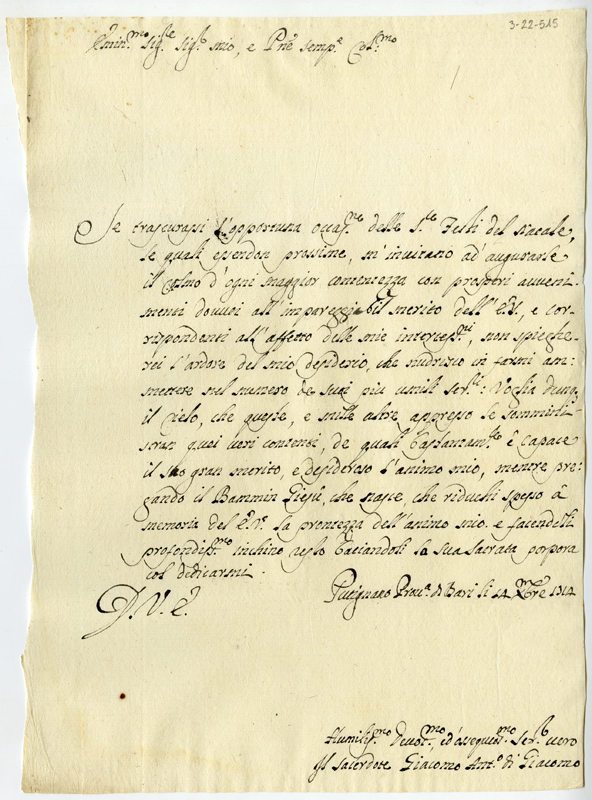 3-22-515
Emin.mo Sig.re Sig.r mio, e Pne semp.e Col.mo
Se trascurassi l'opportuna occas.ne delle S.te Feste del Natale,
le quali essendon prossime, m'invitano ad' augurarle
il colmo d'ogni maggior contentezza con prosperi avveni-
menti dovuti all'impareggiabil merito dell'E.V., e cor-
rispondenti all'affetto delle mie intercess.ni, non spieghe-
rei l'ardore del mio desiderio, che nudrisco in farmi am-
mettere nel numero de suoi più umili ser.ri: Voglia dunq
il Cielo, che queste, e mille altre appresso le somministr-
stran quei veri contenti, de quali bastantem.te è capace
il suo gran merito, e desideroso l'animo mio, mentre pre-
gando il Bammin Giesù, che nasce, che riduchi spesso à
memoria del E.V. la prontezza dell'animo mio. e facendoli
profondis.mo inchino resto baciandoli la sua sacrata porpora
col dedicarmi.
D. V. E.
Putignano Prov.a di Bari li 14 Xmbre 1714
Humilis.mo Devot.mo, ed' ossequios.mo Ser.r vero
Il Sacerdote Giacomo Ant.o di Giacomo